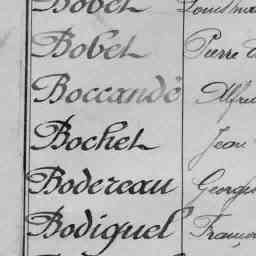 Bobet
Bobet Pierre
Boccandé Alfre
Bochet Jean
Bodereau George
Bodiguel Franço